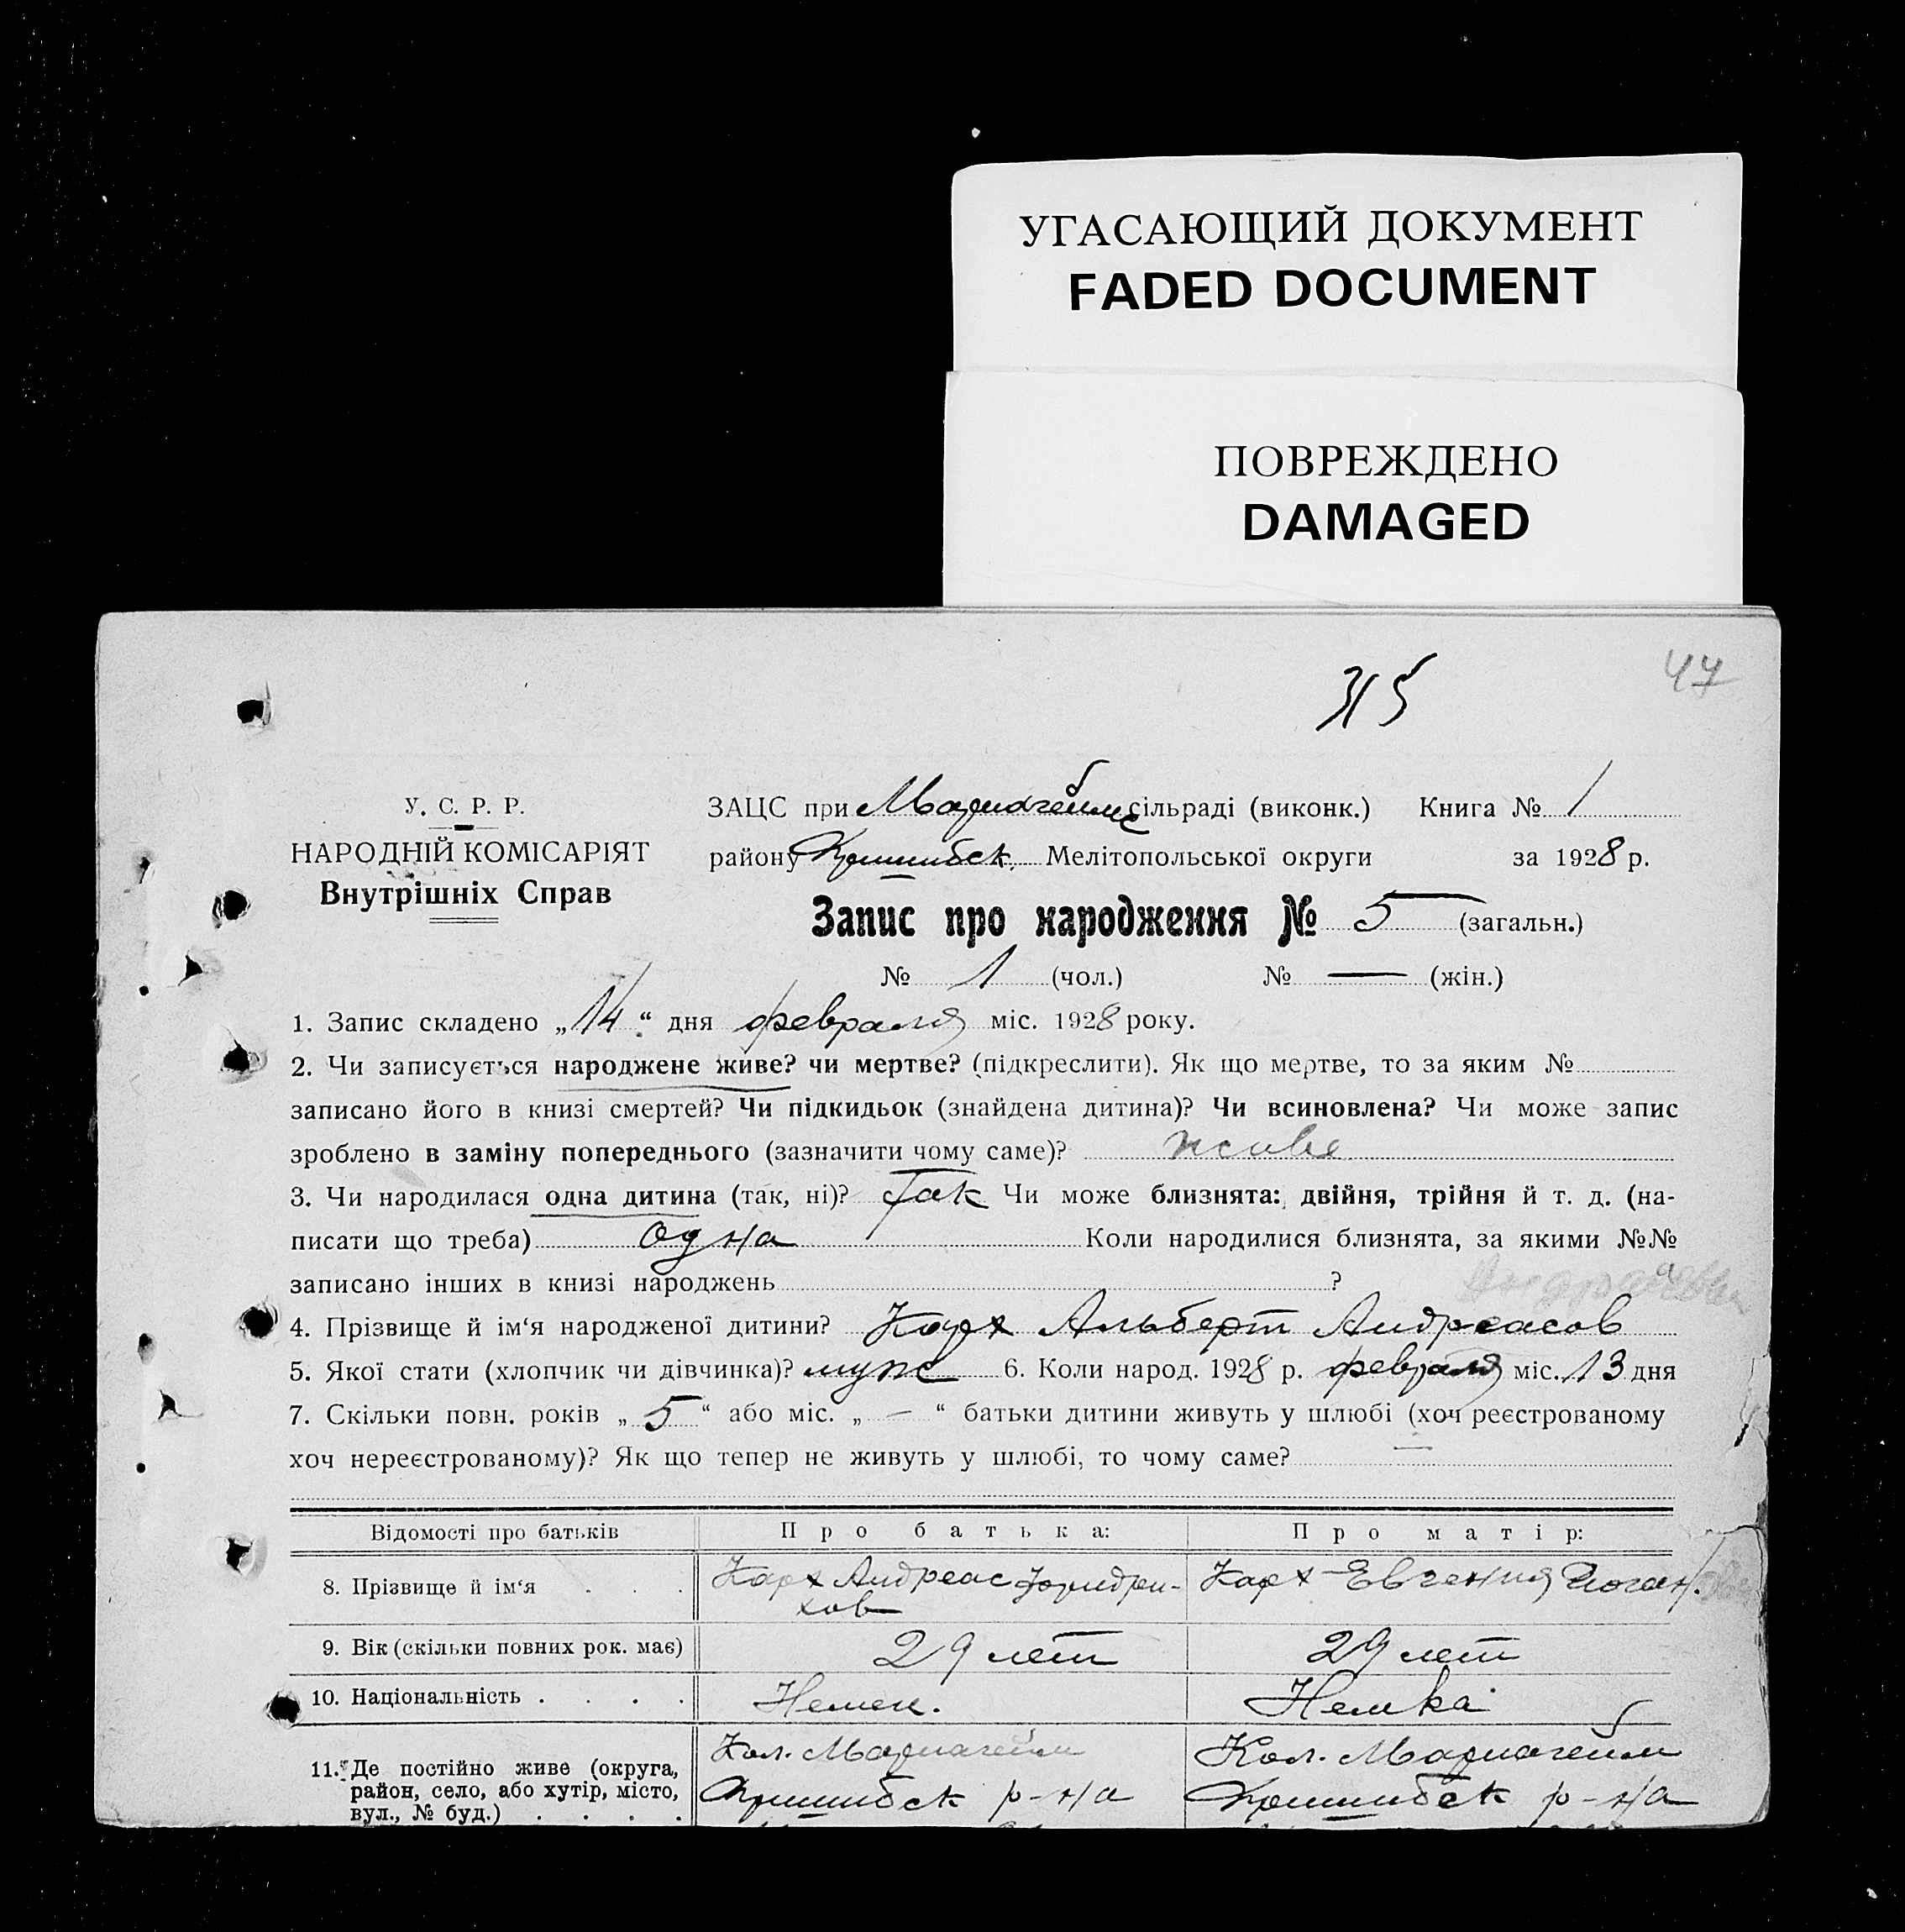 УГАСАЮЩИЙ ДОКУМЕНТ
FADED DOCUMENT
ПОВРЕЖДЕНО
DAMAGED
47
315
У. С. Р. Р.
НАРОДНІЙ КОМІСАРІЯТ
Внутрішніх Справ
ЗАЦС при Мариагейм сільраді (виконк.) Книга № 1
району Пришибск. Мелітопольської округи за 1928 р.
Запис про народження № 5 (загальн.)
№ 1 (чол.) № — (жін.)
1. Запис складено „14“ дня февраля міс. 1928 року.
2. Чи записується народжене живе? чи мертве? (підкреслити). Як що мертве, то за яким №
записано його в книзі смертей? Чи підкидьок (знайдена дитина)? Чи всиновлена? Чи може запис
зроблено в заміну попереднього (зазначити чому саме)? живе
3. Чи народилася одна дитина (так, ні)? Так Чи може близнята: двійня, трійня й т. д. (на-
писати що треба) одна Коли народилися близнята, за якими №№
записано інших в книзі народжень ?
4. Прізвище й ім‘я народженої дитини? Карх Альберт Андреасов
5. Якої стати (хлопчик чи дівчинка)? муж 6. Коли народ. 1928 р. февраля міс. 13 дня
7. Скільки повн. років „ 5 “ або міс. „ — “ батьки дитини живуть у шлюбі (хоч реєстрованому
хоч нереєстрованому)? Як що тепер не живуть у шлюбі, то чому саме? —
Відомості про батьків Про батька: Про матір:
8. Прізвище й ім‘я . . . Карх Андреас Фридри-
хов
Карх Евгения Иоган.
9. Вік (скільки повних рок. має) 29 лет 29 лет
10. Національність . . . . Немец. Немка
11. Де постійно живе (округа,
район, село, або хутір, місто,
вул., № буд.) . . . .
Кол. Мариагейм
Пришибск р-на
Кол. Мариагейм
Пришибск р-на